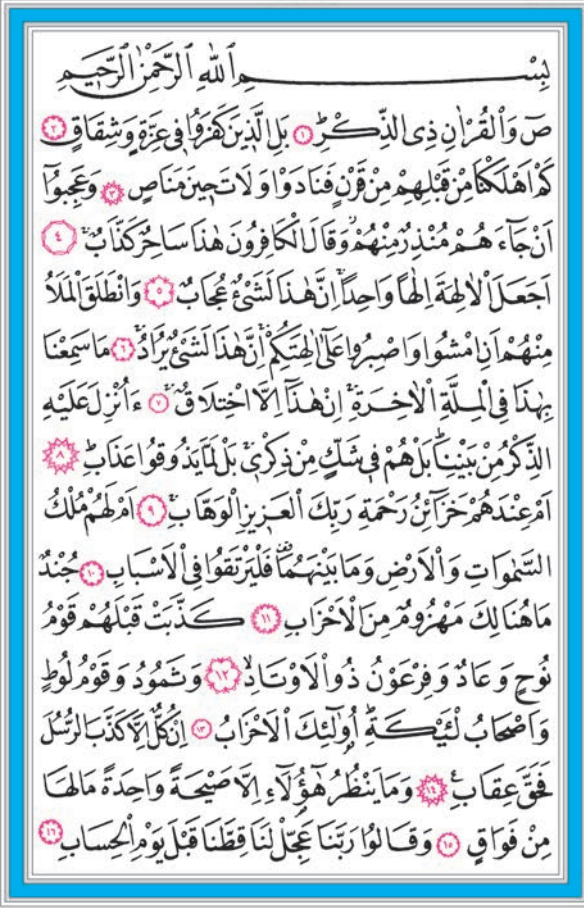 بِسْمِ اللهِ الرَّحْمٰنِ الرَّحِيمِ
صٓ وَالْقُرْاٰنِ ذِى الذِّكْرِۜ ﴿١﴾ بَلِ الَّذِينَ كَفَرُوا فِى عِزَّةٍ وَشِقَاقٍ ﴿٢﴾
كَمْ اَهْلَكْنَا مِنْ قَبْلِهِمْ مِنْ قَرْنٍ فَنَادَوْا وَلَاتَ حِينَ مَنَاصٍ ﴿٣﴾ وَعَجِبُٓوا
اَنْ جَٓاءَهُمْ مُنْذِرٌ مِنْهُمْۘ وَقَالَ الْكَافِرُونَ هٰذَا سَاحِرٌ كَذَّابٌۚ ﴿٤﴾
اَجَعَلَ الْاٰلِهَةَ اِلٰهًا وَاحِدًاۚ اِنَّ هٰذَا لَشَىْءٌ عُجَابٌ ﴿٥﴾ وَانْطَلَقَ الْمَلَأُ
مِنْهُمْ اَنِ امْشُوا وَاصْبِرُوا عَلٰٓى اٰلِهَتِكُمْۚ اِنَّ هٰذَا لَشَىْءٌ يُرَادُۚ ﴿٦﴾ مَا سَمِعْنَا
بِهٰذَا فِى الْمِلَّةِ الْاٰخِرَةِۚ اِنْ هٰذَٓا اِلَّا اخْتِلَاقٌۚ ﴿٧﴾ ءَاُنْزِلَ عَلَيْهِ
الذِّكْرُ مِنْ بَيْنِنَاۜ بَلْ هُمْ فِى شَكٍّ مِنْ ذِكْرِىۚ بَلْ لَمَّا يَذُوقُوا عَذَابِۜ ﴿٨﴾
اَمْ عِنْدَهُمْ خَزَٓائِنُ رَحْمَةِ رَبِّكَ الْعَزِيزِ الْوَهَّابِۚ ﴿٩﴾ اَمْ لَهُمْ مُلْكُ
السَّمٰوَاتِ وَالْاَرْضِ وَمَا بَيْنَهُمَا۠ فَلْيَرْتَقُوا فِى الْاَسْبَابِ ﴿١٠﴾ جُنْدٌ
مَا هُنَالِكَ مَهْزُومٌ مِنَ الْاَحْزَابِ ﴿١١﴾ كَذَّبَتْ قَبْلَهُمْ قَوْمُ
نُوحٍ وَعَادٌ وَفِرْعَوْنُ ذُو الْاَوْتَادِۙ ﴿١٢﴾ وَثَمُودُ وَقَوْمُ لُوطٍ
وَاَصْحَابُ لْـَٔيْكَةِۜ اُو۬لٰٓئِكَ الْاَحْزَابُ ﴿١٣﴾ اِنْ كُلٌّ اِلَّا كَذَّبَ الرُّسُلَ
فَحَقَّ عِقَابِ۟ ﴿١٤﴾ وَمَا يَنْظُرُ هٰٓؤُ۬لَٓاءِ اِلَّا صَيْحَةً وَاحِدَةً مَا لَهَا
مِنْ فَوَاقٍ ﴿١٥﴾ وَقَالُوا رَبَّنَا عَجِّلْ لَنَا قِطَّنَا قَبْلَ يَوْمِ الْحِسَابِ ﴿١٦﴾